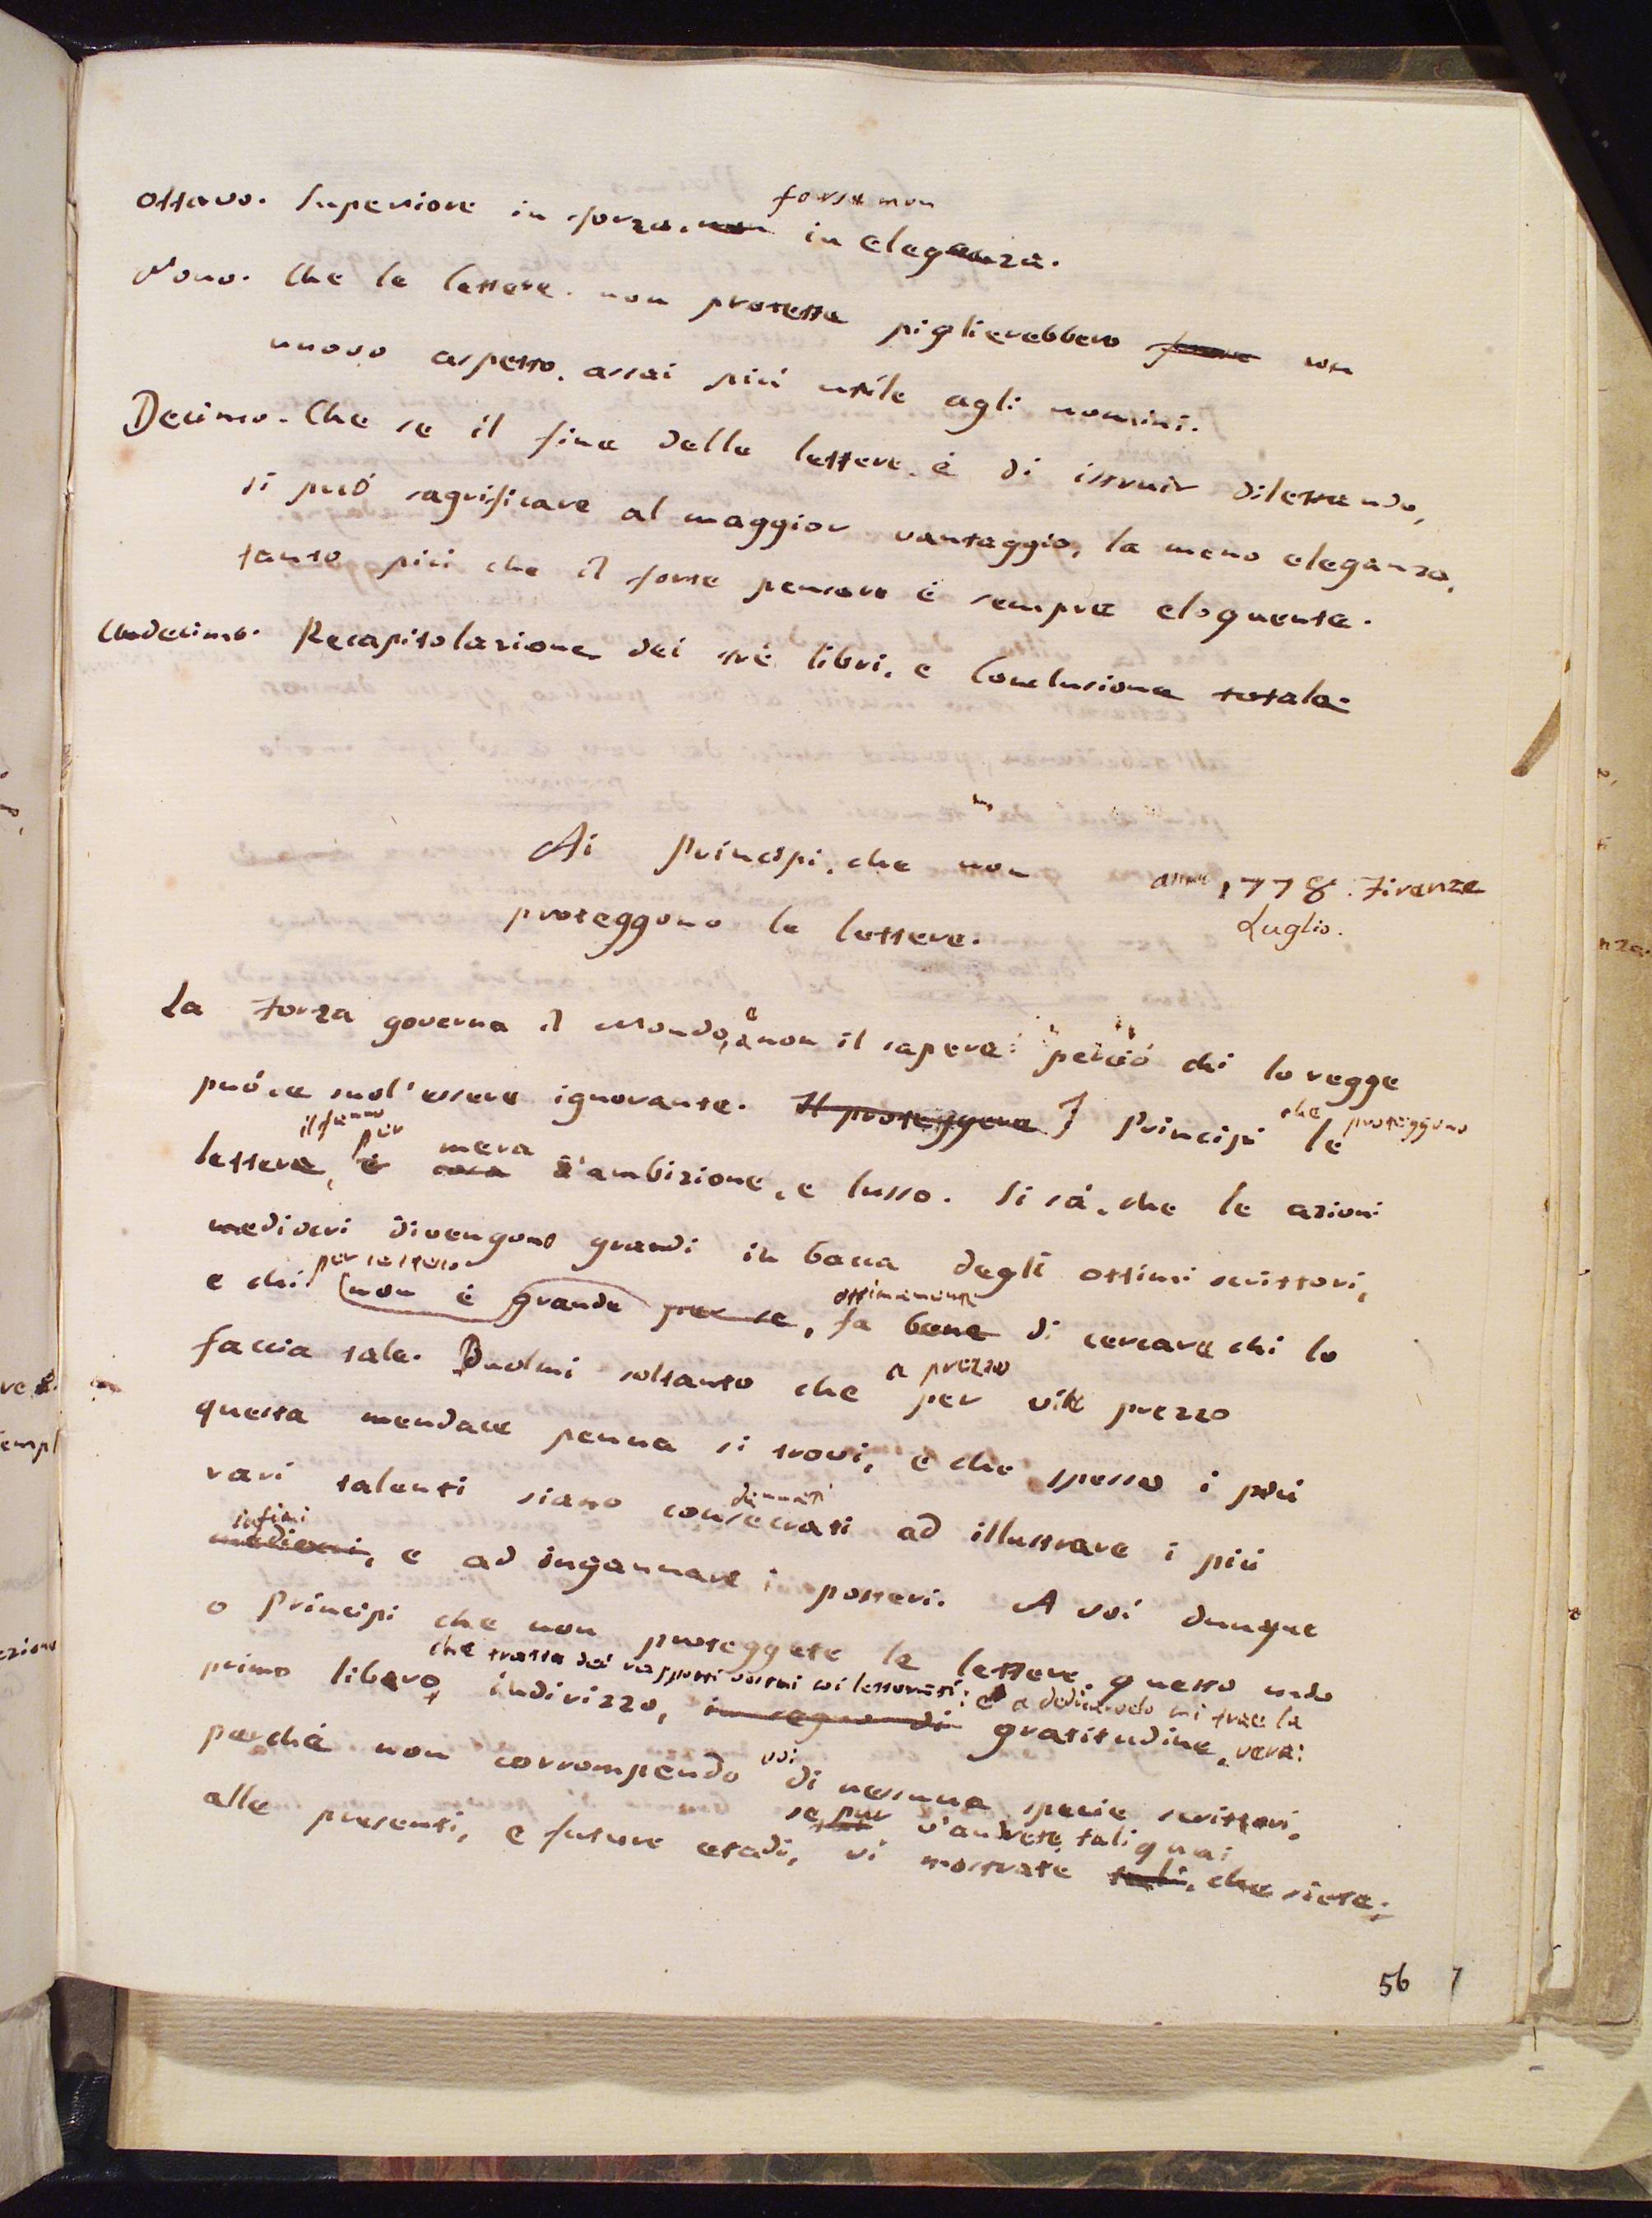 ottavo. Superiore in forza, non forse non in eleganza.
Nono. Che le lettere non protette piglierebbero forse un
nuovo aspetto, assai più utile agli uomini.
Decimo. Che se il fine delle lettere, è di istruir dilettando,
si può sagrificare al maggior vantaggio, la meno eleganza,
tanto più che il forte pensare è sempre eloquente.
Undecimo. Recapitolazione dei trè libri, e Conclusione totale.
Ai Principi, che non
proteggono le lettere.
anno 1778. Firenze
Luglio.
La Forza governa il Mondo, e non il sapere: perciò chi lo regge
può, e suol' essere ignorante. Il proteggere I Principi che proteggono le
lettere, il fanno per è mera cosa d'ambizione, e lusso. Si sà, che le azioni
mediocri divengono grandi in bocca degli ottimi scrittori,
e chi per se stesso non è grande per se, ottimamente fa bene di cercare chi lo
faccia tale. Duolmi soltanto che a prezzo per vile prezzo
questa mendace penna si trovi, e che spesso i più
rari talenti siano consecrati dannati ad illustrare i più
infimi mediocri, e ad ingannare i posteri. A voi dunque
o Principi che non proteggete le lettere, questo mio
primo libero, che tratta dei rapporti vostri coi letterati; indirizzo, in segno di e a dedicarvelo mi trae la gratitudine, vera:
perchè non corrompendo voi di nessuna specie scrittori,
alle presenti, e future etadi, se pur v'andrete, tali quai vi mostrate tali, che siete;
56 7